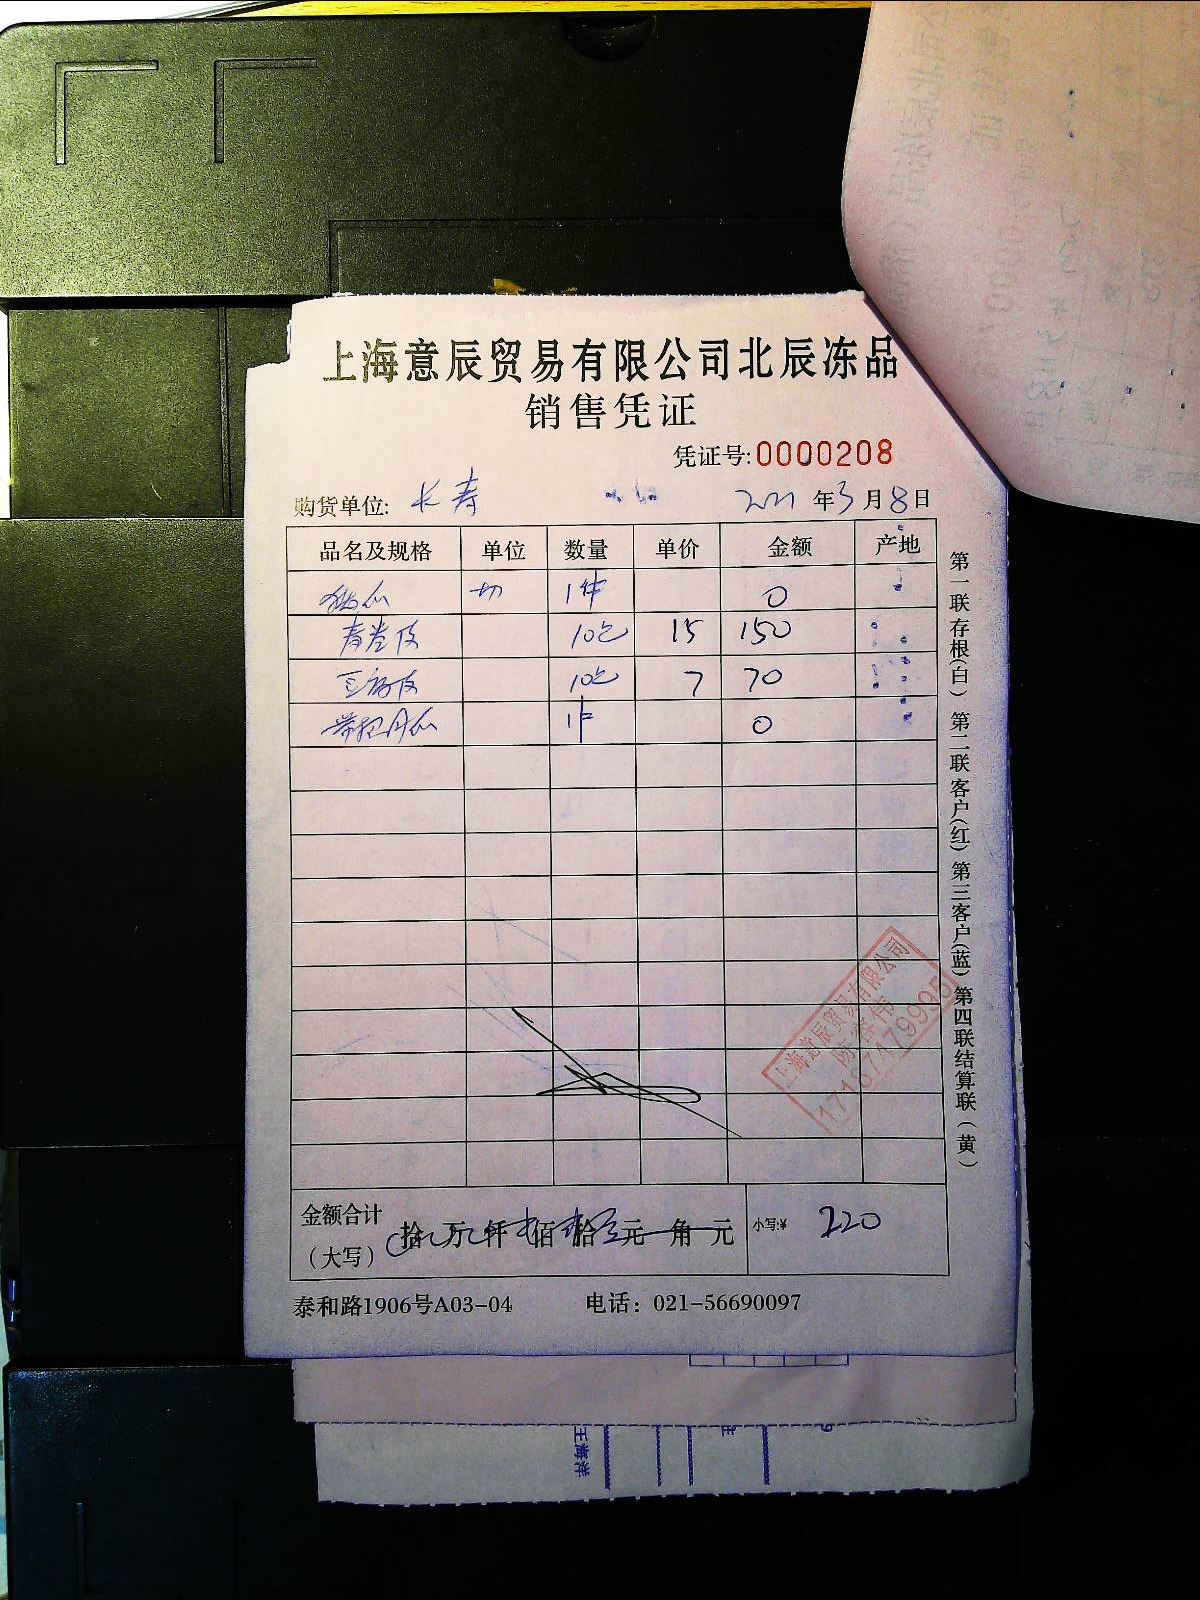 上海意辰贸易有限公司北辰冻品
销售凭证
凭证号:0000208
购货单位: 长寿 2021年3月8日
品名及规格 单位 数量 单价 金额 产地
切 1件 0
春卷皮 10包 15 150
10包 7 70
1件 0
第一联存根(白) 第二联客户(红) 第三客户(蓝) 第四联结算联(黄)
上海意辰贸易有限公司
17167479995
金额合计
(大写) 拾 万 仟 佰 拾 元 角 元 小写:¥ 220
泰和路1906号A03-04 电话: 021-56690097
王海洋